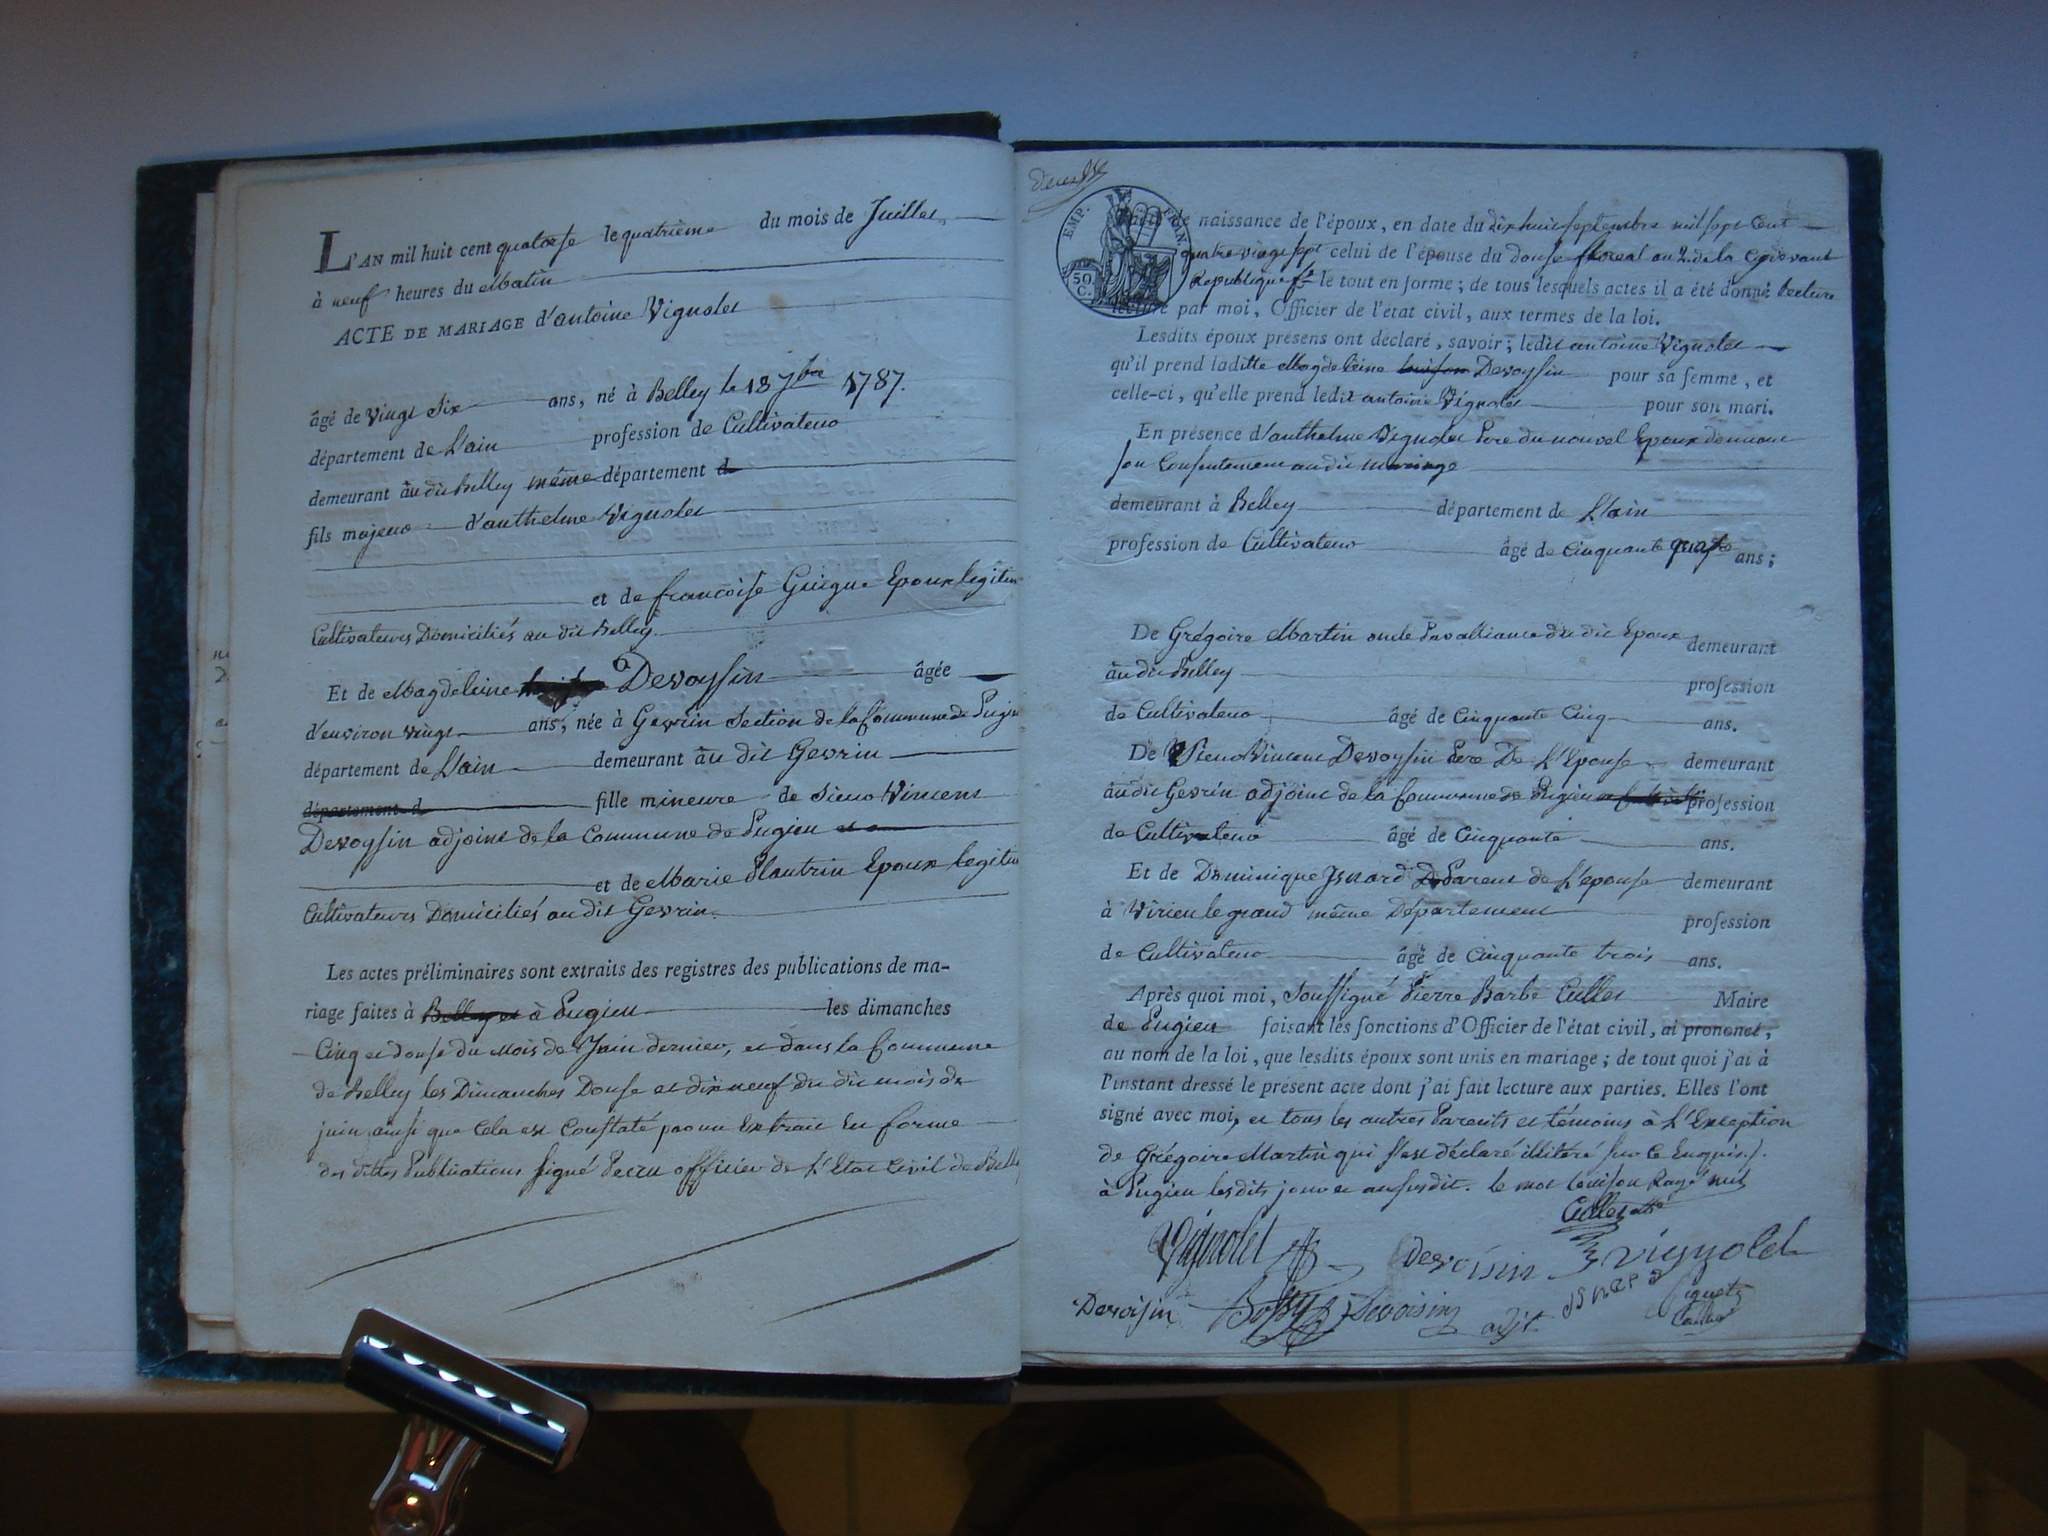 L'AN mil huit cent quatorse le quatrième du mois de Juillet
à neuf heures du Matin
ACTE DE MARIAGE d'antoine Vignolet
âgé de vingt six ans, né à Belley le 18 7bre 1787.
département de L'ain profession de Cultivateur
demeurant àu dit Belley même département d
fils majeur d'anthelme Vignolet
et de françoise Guigue Epoux legitim
Cultivateurs Domiciliés au dit Belley.
Et de Magdeleine Devoysin âgée
d'environ vingt ans, née à Gevrin Section de la Commune de Pugieu
département de L'ain demeurant àu dit Gevrin
département d fille mineure de Sieur Vincent
Devoysin adjoint de la Commune de Pugieu
et de Marie Plautrin Epoux legitim
Cultivateurs Domiciliés au dit Gevrin.
Les actes préliminaires sont extraits des registres des publications de ma-
riage faites à Belley et à Pugieu les dimanches
Cinq et douse du mois de Juin dernier, et dans la Commune
de Belley les Dimanches Douse et dix neuf du dit mois de
juin ainsi que Cela est Constaté par un Extrait En forme
des dittes Publications signé officier de L'Etat Civil de Belle
EMP. FRAN.
50 C.
de naissance de l'époux, en date du dix huit septembre mil sept Cent
quatre vingt sept celui de l'épouse du douse floreal an 2 de la cydevant
Republique fse le tout en forme; de tous lesquels actes il a été donné lecture
lecture par moi, Officier de l'état civil, aux termes de la loi.
Lesdits époux présens ont déclaré, savoir; ledit antoine Vignolet
qu'il prend laditte Magdeleine louison Devoysin pour sa femme, et
celle-ci, qu'elle prend ledit antoine Vignolet pour son mari.
En présence d'anthelme Vignolet Pere du nouvel Epoux donnant
son Consentement au dit mariage
demeurant à Belley département de L'ain
profession de Cultivateur âgé de Cinquante quatre ans;
De Grégoire Martin oncle Par alliance du dit Epoux demeurant
àu dit Belley profession
de Cultivateur âgé de Cinquante Cinq ans.
De Sieur Vincent Devoysin Pere De L'Epouse demeurant
àu dit Gevrin adjoint de la Commune de Pugieu profession
de Cultivateur âgé de Cinquante ans.
Et de Dominique Jsnard Parent de L'epouse demeurant
à Virieu le grand même Département profession
de Cultivateur âgé de Cinquante trois ans.
Après quoi moi, soussigné Pierre Barbe Cullet Maire
de Pugieu faisant les fonctions d'Officier de l'état civil, ai prononcé,
au nom de la loi, que lesdits époux sont unis en mariage; de tout quoi j'ai à
l'instant dressé le présent acte dont j'ai fait lecture aux parties. Elles l'ont
signé avec moi, et tous les autres Parents et témoins à L'Exception
de Grégoire Martin qui s'est déclaré illitéré sur ce Enquis.
à Pugieu lesdits jour et an susdit. le mot louison Rayé nul
Cullet
Vignolet devoisin vignolet
Devoisin Bossy Devoisin adjt isnard Piquet